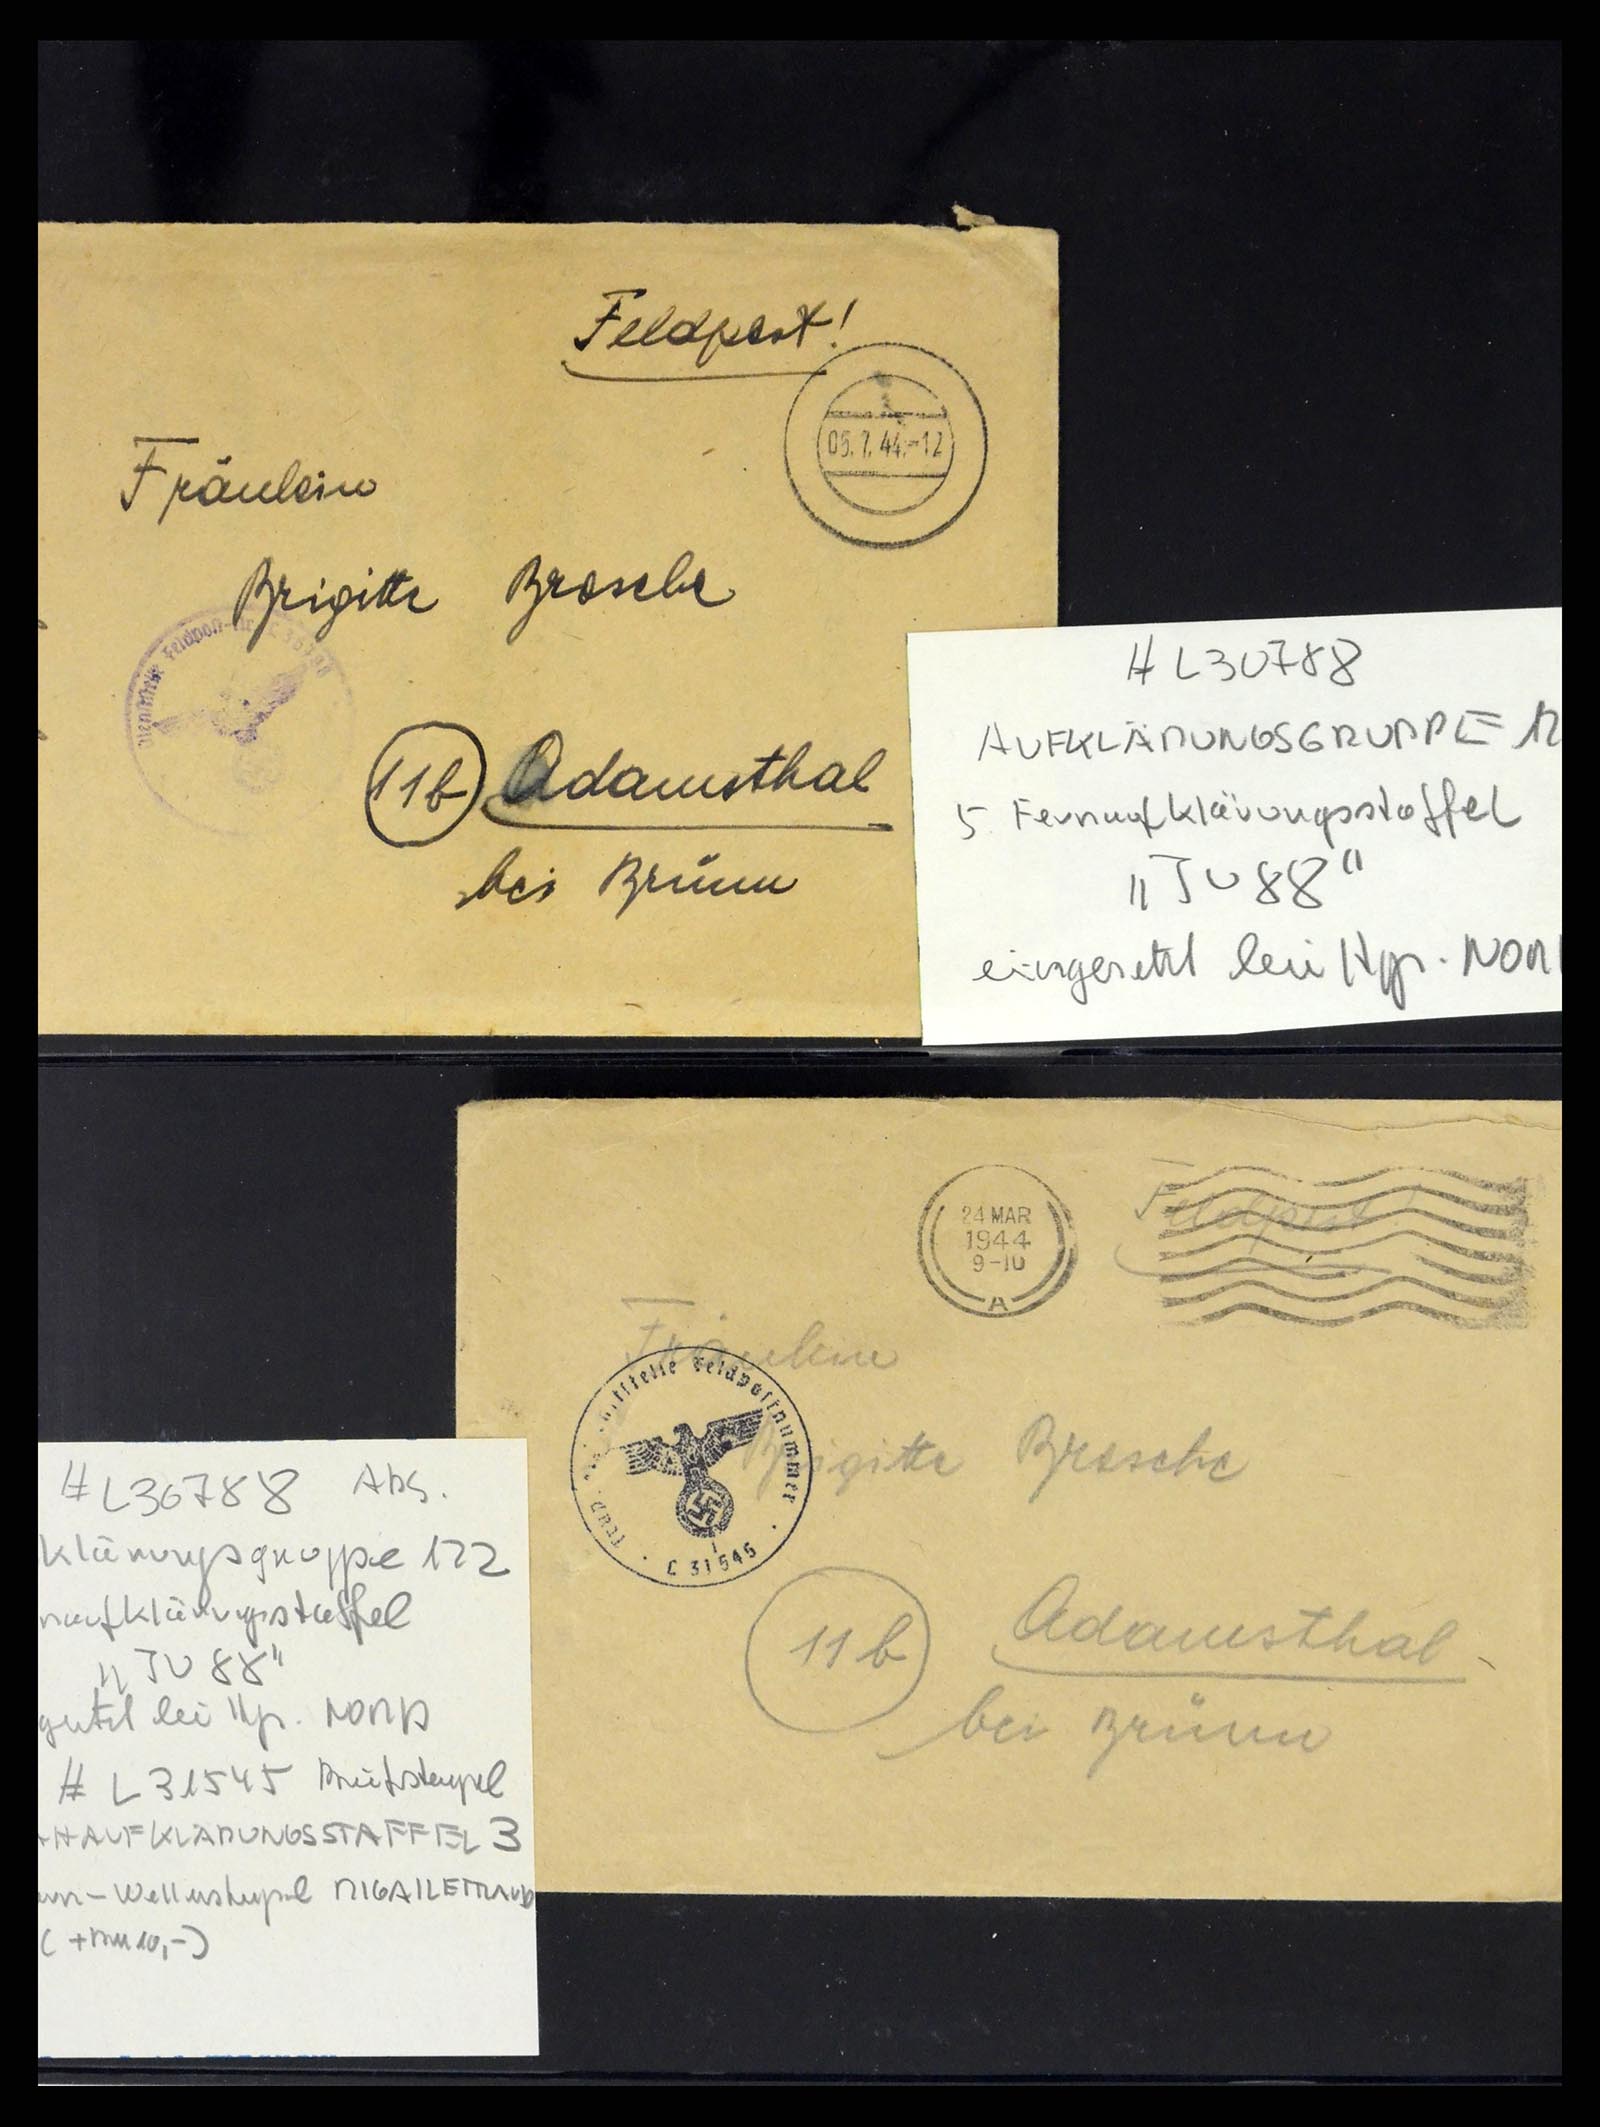 Feldpost!
05.7.44.-12
Fräulein
Brigitte Brosche
Dienststelle Feldpost-Nr.
11b Adamsthal
bei Brünn
# L30788
AUFKLÄRUNGSGRUPPE 12
5. Fernaufklärungsstaffel
"JU 88"
eingesetzt bei Hgr. NOR
24 MAR
1944
9-10
A
Feldpost!
Fräulein
Brigitte Brosche
Feldpostnummer
L 31545
11b Adamsthal
bei Brünn
# L30788 Abs.
klärungsgruppe 122
naufklärungsstaffel
"JU 88"
gesetzt bei Hgr. NORD
# L31545 Briefstempel
HAUFKLÄRUNGSSTAFFEL 3
-Wellenstempel